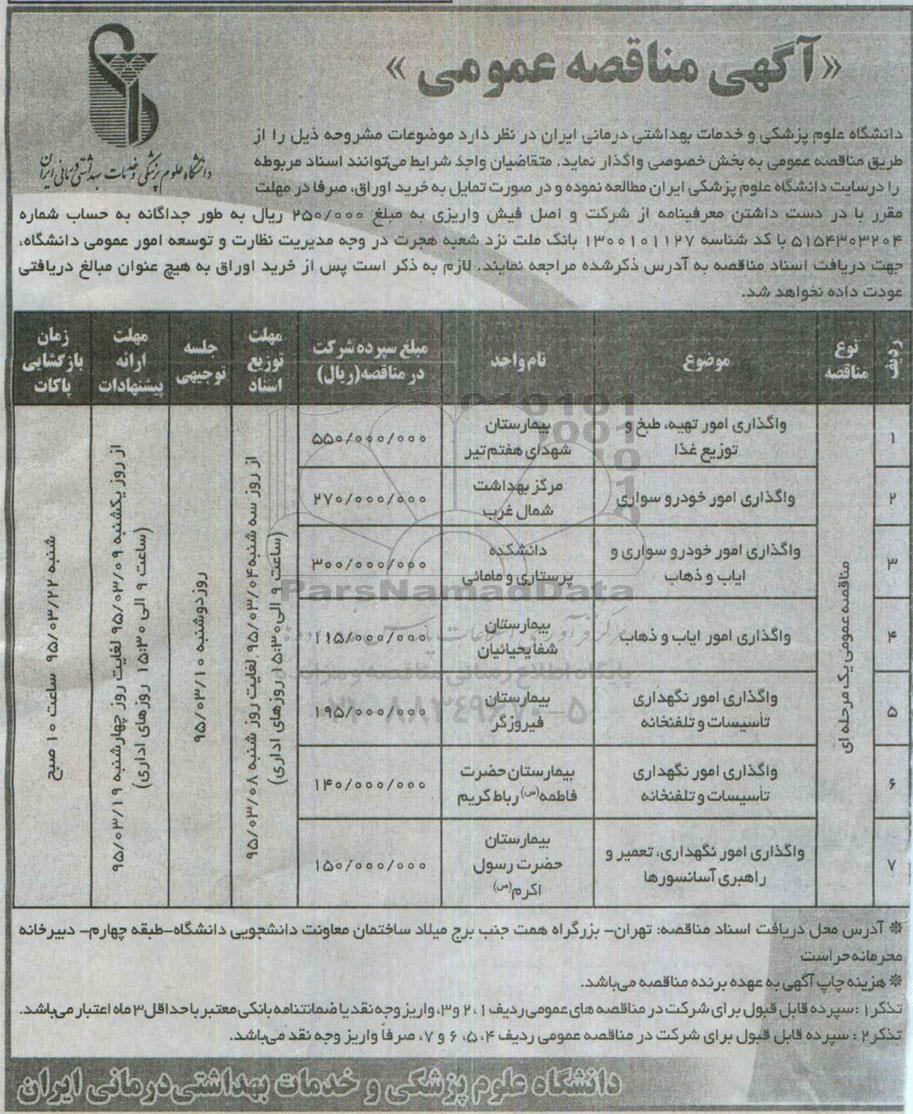 «آگهی مناقصه عمومی»
دانشگاه علوم پزشکی و خدمات بهداشتی درمانی ایران
دانشگاه علوم پزشکی و خدمات بهداشتی درمانی ایران در نظر دارد موضوعات مشروحه ذیل را از
طریق مناقصه عمومی به بخش خصوصی واگذار نماید. متقاضیان واجد شرایط می‌توانند اسناد مربوطه
را درسایت دانشگاه علوم پزشکی ایران مطالعه نموده و در صورت تمایل به خرید اوراق، صرفا در مهلت
مقرر با در دست داشتن معرفینامه از شرکت و اصل فیش واریزی به مبلغ ۲۵۰/۰۰۰ ریال به طور جداگانه به حساب شماره
۵۱۵۴۳۰۳۲۰۴ با کد شناسه ۱۳۰۰۱۰۱۱۲۷ بانک ملت نزد شعبه هجرت در وجه مدیریت نظارت و توسعه امور عمومی دانشگاه،
جهت دریافت اسناد مناقصه به آدرس ذکرشده مراجعه نمایند. لازم به ذکر است پس از خرید اوراق به هیچ عنوان مبالغ دریافتی
عودت داده نخواهد شد.
ردیف
نوع مناقصه
موضوع
نام واحد
مبلغ سپرده شرکت در مناقصه(ریال)
مهلت توزیع اسناد
جلسه توجیهی
مهلت ارائه پیشنهادات
زمان بازگشایی پاکات
۱
واگذاری امور تهیه، طبخ و توزیع غذا
بیمارستان شهدای هفتم تیر
۵۵۰/۰۰۰/۰۰۰
۲
واگذاری امور خودرو سواری
مرکز بهداشت شمال غرب
۲۷۰/۰۰۰/۰۰۰
۳
واگذاری امور خودرو سواری و ایاب و ذهاب
دانشکده پرستاری و مامائی
۳۰۰/۰۰۰/۰۰۰
۴
واگذاری امور ایاب و ذهاب
بیمارستان شفایحیائیان
۱۱۵/۰۰۰/۰۰۰
۵
واگذاری امور نگهداری تأسیسات و تلفنخانه
بیمارستان فیروزگر
۱۹۵/۰۰۰/۰۰۰
۶
واگذاری امور نگهداری تأسیسات و تلفنخانه
بیمارستان حضرت فاطمه(س) رباط کریم
۱۴۰/۰۰۰/۰۰۰
۷
واگذاری امور نگهداری، تعمیر و راهبری آسانسورها
بیمارستان حضرت رسول اکرم(ص)
۱۵۰/۰۰۰/۰۰۰
مناقصه عمومی یک مرحله ای
از روز سه شنبه ۹۵/۰۳/۰۴ لغایت روز شنبه ۹۵/۰۳/۰۸
(ساعت ۹ الی ۱۵:۳۰ روزهای اداری)
روز دوشنبه ۹۵/۰۳/۱۰
از روز یکشنبه ۹۵/۰۳/۰۹ لغایت روز چهارشنبه ۹۵/۰۳/۱۹
(ساعت ۹ الی ۱۵:۳۰ روزهای اداری)
شنبه ۹۵/۰۳/۲۲ ساعت ۱۰ صبح
ParsNamadData
پایگاه اطلاع رسانی مناقصه و مزایده
* آدرس محل دریافت اسناد مناقصه: تهران- بزرگراه همت جنب برج میلاد ساختمان معاونت دانشجویی دانشگاه-طبقه چهارم- دبیرخانه
محرمانه حراست
* هزینه چاپ آگهی به عهده برنده مناقصه می‌باشد.
تذکر۱ :سپرده قابل قبول برای شرکت در مناقصه های عمومی ردیف ۱، ۲ و۳، واریز وجه نقد یا ضمانتنامه بانکی معتبر با حداقل ۳ ماه اعتبار می‌باشد.
تذکر۲ : سپرده قابل قبول برای شرکت در مناقصه عمومی ردیف ۴، ۵، ۶ و ۷، صرفاً واریز وجه نقد می‌باشد.
دانشگاه علوم پزشکی و خدمات بهداشتی درمانی ایران